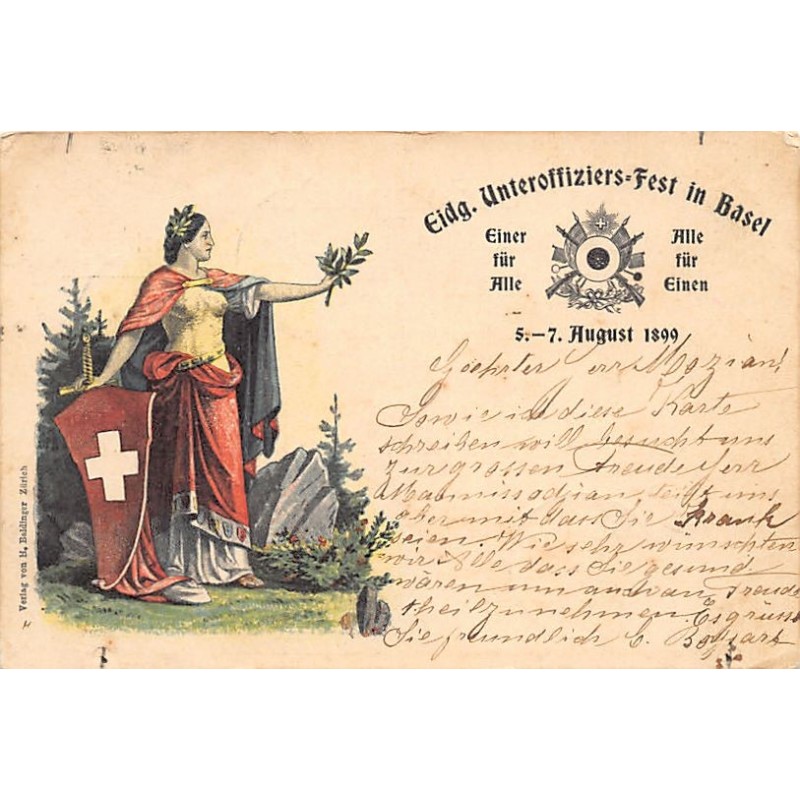 Eidg. Unteroffiziers-Fest in Basel
Einer für Alle
Alle für Einen
5.–7. August 1899
Geehrter Herr
Sowie ich diese Karte
schreiben will besucht uns
zur grossen Freude Herr
teigt uns
aber mit dass Sie Krank
seien. Wie sehr wünschten
wir Alle dass Sie gesund
wären um an Freude
theilzunehmen. Es grüsst
Sie freundlich
Verlag von H. Baldinger Zürich